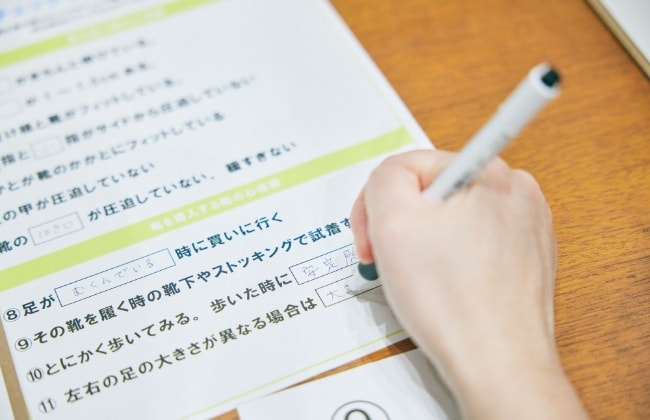 がきちんと伸びている。
が1〜1.5cmある。
け根と靴がフィットしている。
指と　指がサイドから圧迫していない
とが靴のかかとにフィットしている
の甲が圧迫していない
靴の はき口 が圧迫していない、緩すぎない
靴を購入する際の心得編
⑧足が むくんでいる 時に買いに行く
⑨その靴を履く時の靴下やストッキングで試着す
⑩とにかく歩いてみる。歩いた時に 安定
⑪左右の足の大きさが異なる場合は 大